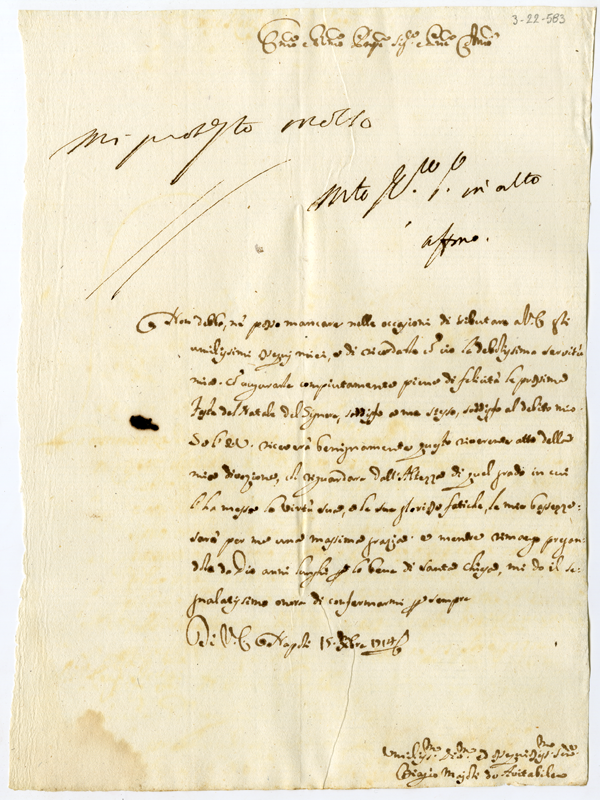 3-22-583
Mi protesto molto
in alto
affmo.
Non debbo, nè posso mancare nelle occasioni di tributare a V. E. gli
umilissimi ossequj miei, e di ricordarle con ciò la debolissima servitù
mia. Con augurarle compiutamente piene di felicità le prossime
feste del Natale del Signore, sodisfo a me stesso, sodisfo al debito mio.
Se V. E. riceverà benignamente questo riverente atto della
mia divozione, col riguardare dall'Altezza di quel grado in cui
l'ha messo la virtù sua, e le sue gloriose fatiche, la mia bassezza:
sarà per me una massima grazia. e mentre rimango pregan-
dole da Dio anni lunghi per lo bene di Santa Chiesa, mi do il se-
gnalatissimo onore di confermarmi per sempre
Di V. E. Napoli 15. Xbre 1714
Biagio Majoli de Avitabile